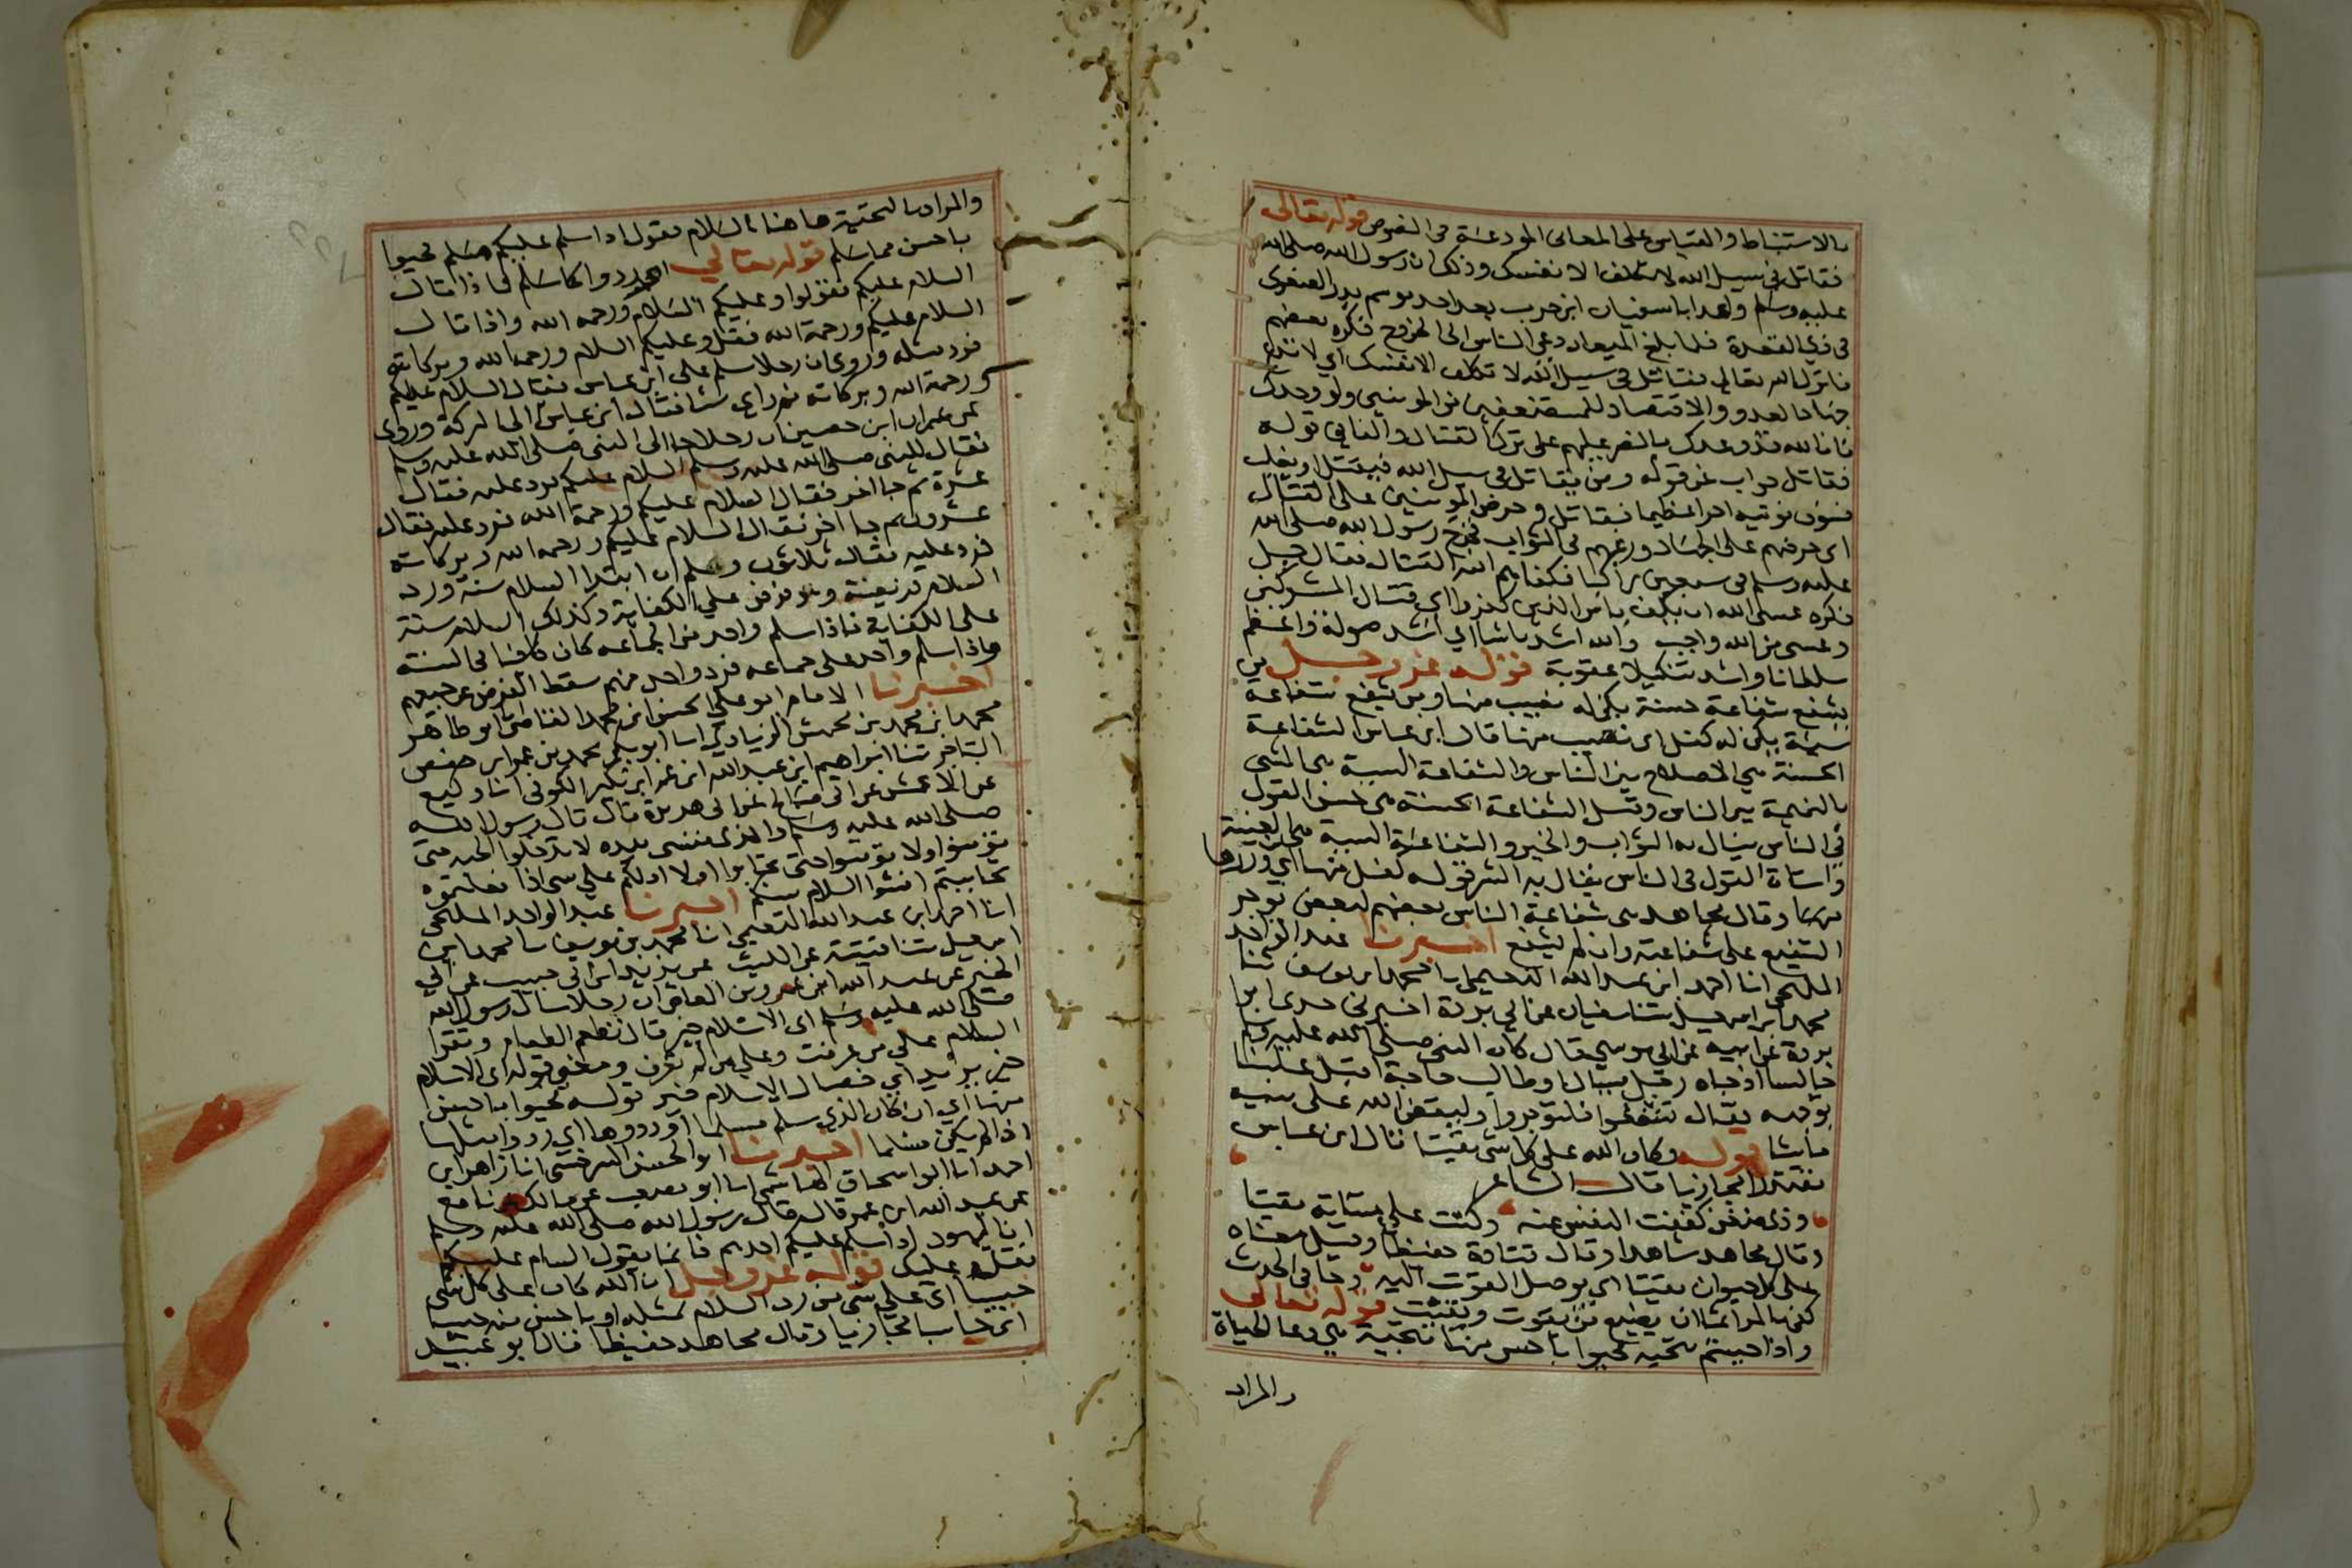 بالاستنباط والقياس على المعانى المودعة فى النصوص قوله تعالى
فقاتل فى سبيل الله لا تكلف الا نفسك وذلك ان رسول الله صلى الله
عليه وسلم واعد ابا سفيان ابن حرب بعد احد موسم بدر الصغرى
فى ذي القعدة فلما بلغ الميعاد دعى الناس الى الخروج فكره بعضهم
فانزل الله تعالى فقاتل فى سبيل الله لا تكلف الا نفسك اي لا تدع
جهاد العدو والاقتصاد للمستضعفين من المومنين ولو وحدك
فان الله قد وعدك بالنصر عليهم على ترك القتال والفا في قوله
فقاتل جواب عن قوله ومن يقاتل فى سبيل الله فيقتل او يغلب
فسوف نوتيه اجرا عظيما فقاتل وحرض المومنين على القتال
اى حرضهم على الجهاد ورغبهم فى الثواب فخرج رسول الله صلى الله
عليه وسلم فى سبعين راكبا فكفاهم الله القتال فقال جل
ذكره عسى الله ان يكف باس الذين كفروا اى قتال المشركين
وعسى من الله واجب والله اشد باسا اي اشد صولة واعظم
سلطانا واشد تنكيلا عقوبة قوله عز وجل من
يشفع شفاعة حسنة يكن له نصيب منها ومن يشفع شفاعة
سيئة يكن له كفل اى نصيب منها قال ابن عباس الشفاعة
الحسنة هى الاصلاح بين الناس والشفاعة السيية هى المشى
بالنميمة بين الناس وقيل الشفاعة الحسنة هى حسن القول
في الناس ينال به الثواب والخير والشفاعة السيية هى الغيبة
واساة القول فى الناس ينال به الشر قوله كفل منها اي وزرها
منها وقال مجاهد هى شفاعة الناس بعضهم لبعض يوجر
الشفيع على شفاعته وان لم يشفع اخبرنا عبد الواحد
المليحى انا احمد ابن عبد الله النعيمى انا محمد ابن يوسف ثنا
محمد ابن اسمعيل ثنا سفيان عن ابي بردة اخبرنى جدى ابو
بردة عن ابيه عن ابي موسى قال كان النبى صلى الله عليه وسلم
جالسا اذ جاه رجل يسال او طالب حاجة اقبل علينا
بوجهه فقال تشفعوا فلتوجروا وليقض الله على نبيه
ماشا قوله وكان الله على كل شى مقيتا قال ابن عباس
مقتدرا مجازيا قال الشاعر
وذى ضغن كففت النفس عنه وكنت على مساته مقيتا
وقال مجاهد شاهدا وقال قتادة حفيظا وقيل معناه
على كل حيوان مقيتا اى يوصل القوت اليه وجا فى الحديث
كفى بالمرا اثما ان يضيع من يقوت ويقيت قوله تعالى
واذا حييتم بتحية فحيوا باحسن منها التحية هى دعا الحياة
والمراد
والمراد بالتحية ها هنا السلام يقول اذا سلم عليكم مسلم فحيوا
باحسن مما سلم قوله تعالى او ردوها كما سلم فاذا قال
السلام عليكم فقولوا وعليكم السلام ورحمة الله واذا قال
السلام عليكم ورحمة الله فقل وعليكم السلام ورحمة الله وبركاته
فرد مثله وروى ان رجلا سلم على ابن عباس فقال السلام عليكم
ورحمة الله وبركاته ثم زاد شيا فقال ابن عباس الى البركة وروى
عن عمران ابن حصين ان رجلا جا الى النبى صلى الله عليه وسلم
فقال للنبى صلى الله عليه وسلم السلام عليكم فرد عليه فقال
عشرة ثم جا اخر فقال السلام عليكم ورحمة الله فرد عليه فقال
عشرون ثم جا اخر فقال السلام عليكم ورحمة الله وبركاته
فرد عليه فقال ثلاثون وعلم ان ابتدا السلام سنة ورد
السلام فريضة وهو فرض على الكفاية وكذلك السلام سنة
على الكفاية فاذا سلم واحد من الجماعه كان كافيا فى السنة
واذا سلم واحد على جماعه فرد واحد منهم سقط الفرض عن جميعهم
اخبرنا الامام ابو على الحسين ابن محمد القاضى ابو طاهر
محمد ابن محمد بن محمش الزيادي انا ابو بكر محمد بن عمر ابن حفص
التاجر ثنا ابراهيم ابن عبد الله ابن عمر ابن بكير الكوفى انا وكيع
عن الاعمش عن ابى صالح عن ابى هريرة قال قال رسول الله
صلى الله عليه وسلم والذى نفسى بيده لا تدخلوا الجنة حتى
تؤمنوا ولا تؤمنوا حتى تحابوا اولا ادلكم على شى اذا فعلتموه
تحاببتم افشوا السلام بينكم اخبرنا عبد الواحد المليحى
انا احمد ابن عبد الله النعيمى انا محمد بن يوسف نا محمد ابن
اسمعيل ثنا قتيبة عن الليث عن يزيد ابن ابى حبيب عن ابى
الخير عن عبد الله ابن عمرو بن العاص ان رجلا سال رسول الله
صلى الله عليه وسلم اى الاسلام خير قال تطعم الطعام وتقرا
السلام على من عرفت وعلى من لم تعرف ومعنى قوله اى الاسلام
خير يريد اي خصال الاسلام خير قوله فحيوا باحسن
منها اي ان كان الذى سلم مسلما او ردوها اي ردوا مثلها
اذا لم يكن مسلما اخبرنا ابو الحسن السرخسى انا زاهر ابن
احمد انا ابو اسحاق الهاشمى انا ابو مصعب عن مالك عن نافع
عن عبد الله ابن عمر قال قال رسول الله صلى الله عليه وسلم
ان اليهود اذا سلم عليكم احدهم فانما يقول السام عليكم
فقل عليك قوله عز وجل ان الله كان على كل شى
حسيبا اى على شى من رد السلام بمثله او باحسن منه حسيبا
اى حاسبا مجازيا وقال مجاهد حفيظا قال ابو عبيد